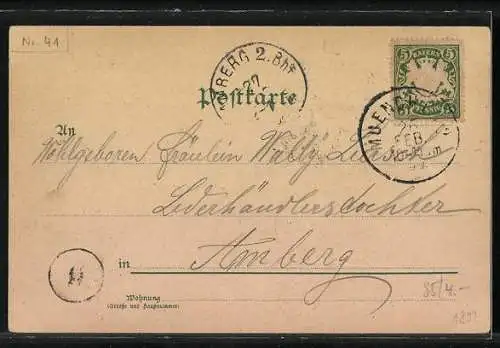 Nr. 41
BERG 2. Bhf
27
5 BAYERN 5
Postkarte
MUENCH
FEB
An
Wohlgeboren Fräulein Wally
Lederhändlerstochter
in Amberg
11
Wohnung
(Straße und Hausnummer)
85/4.-